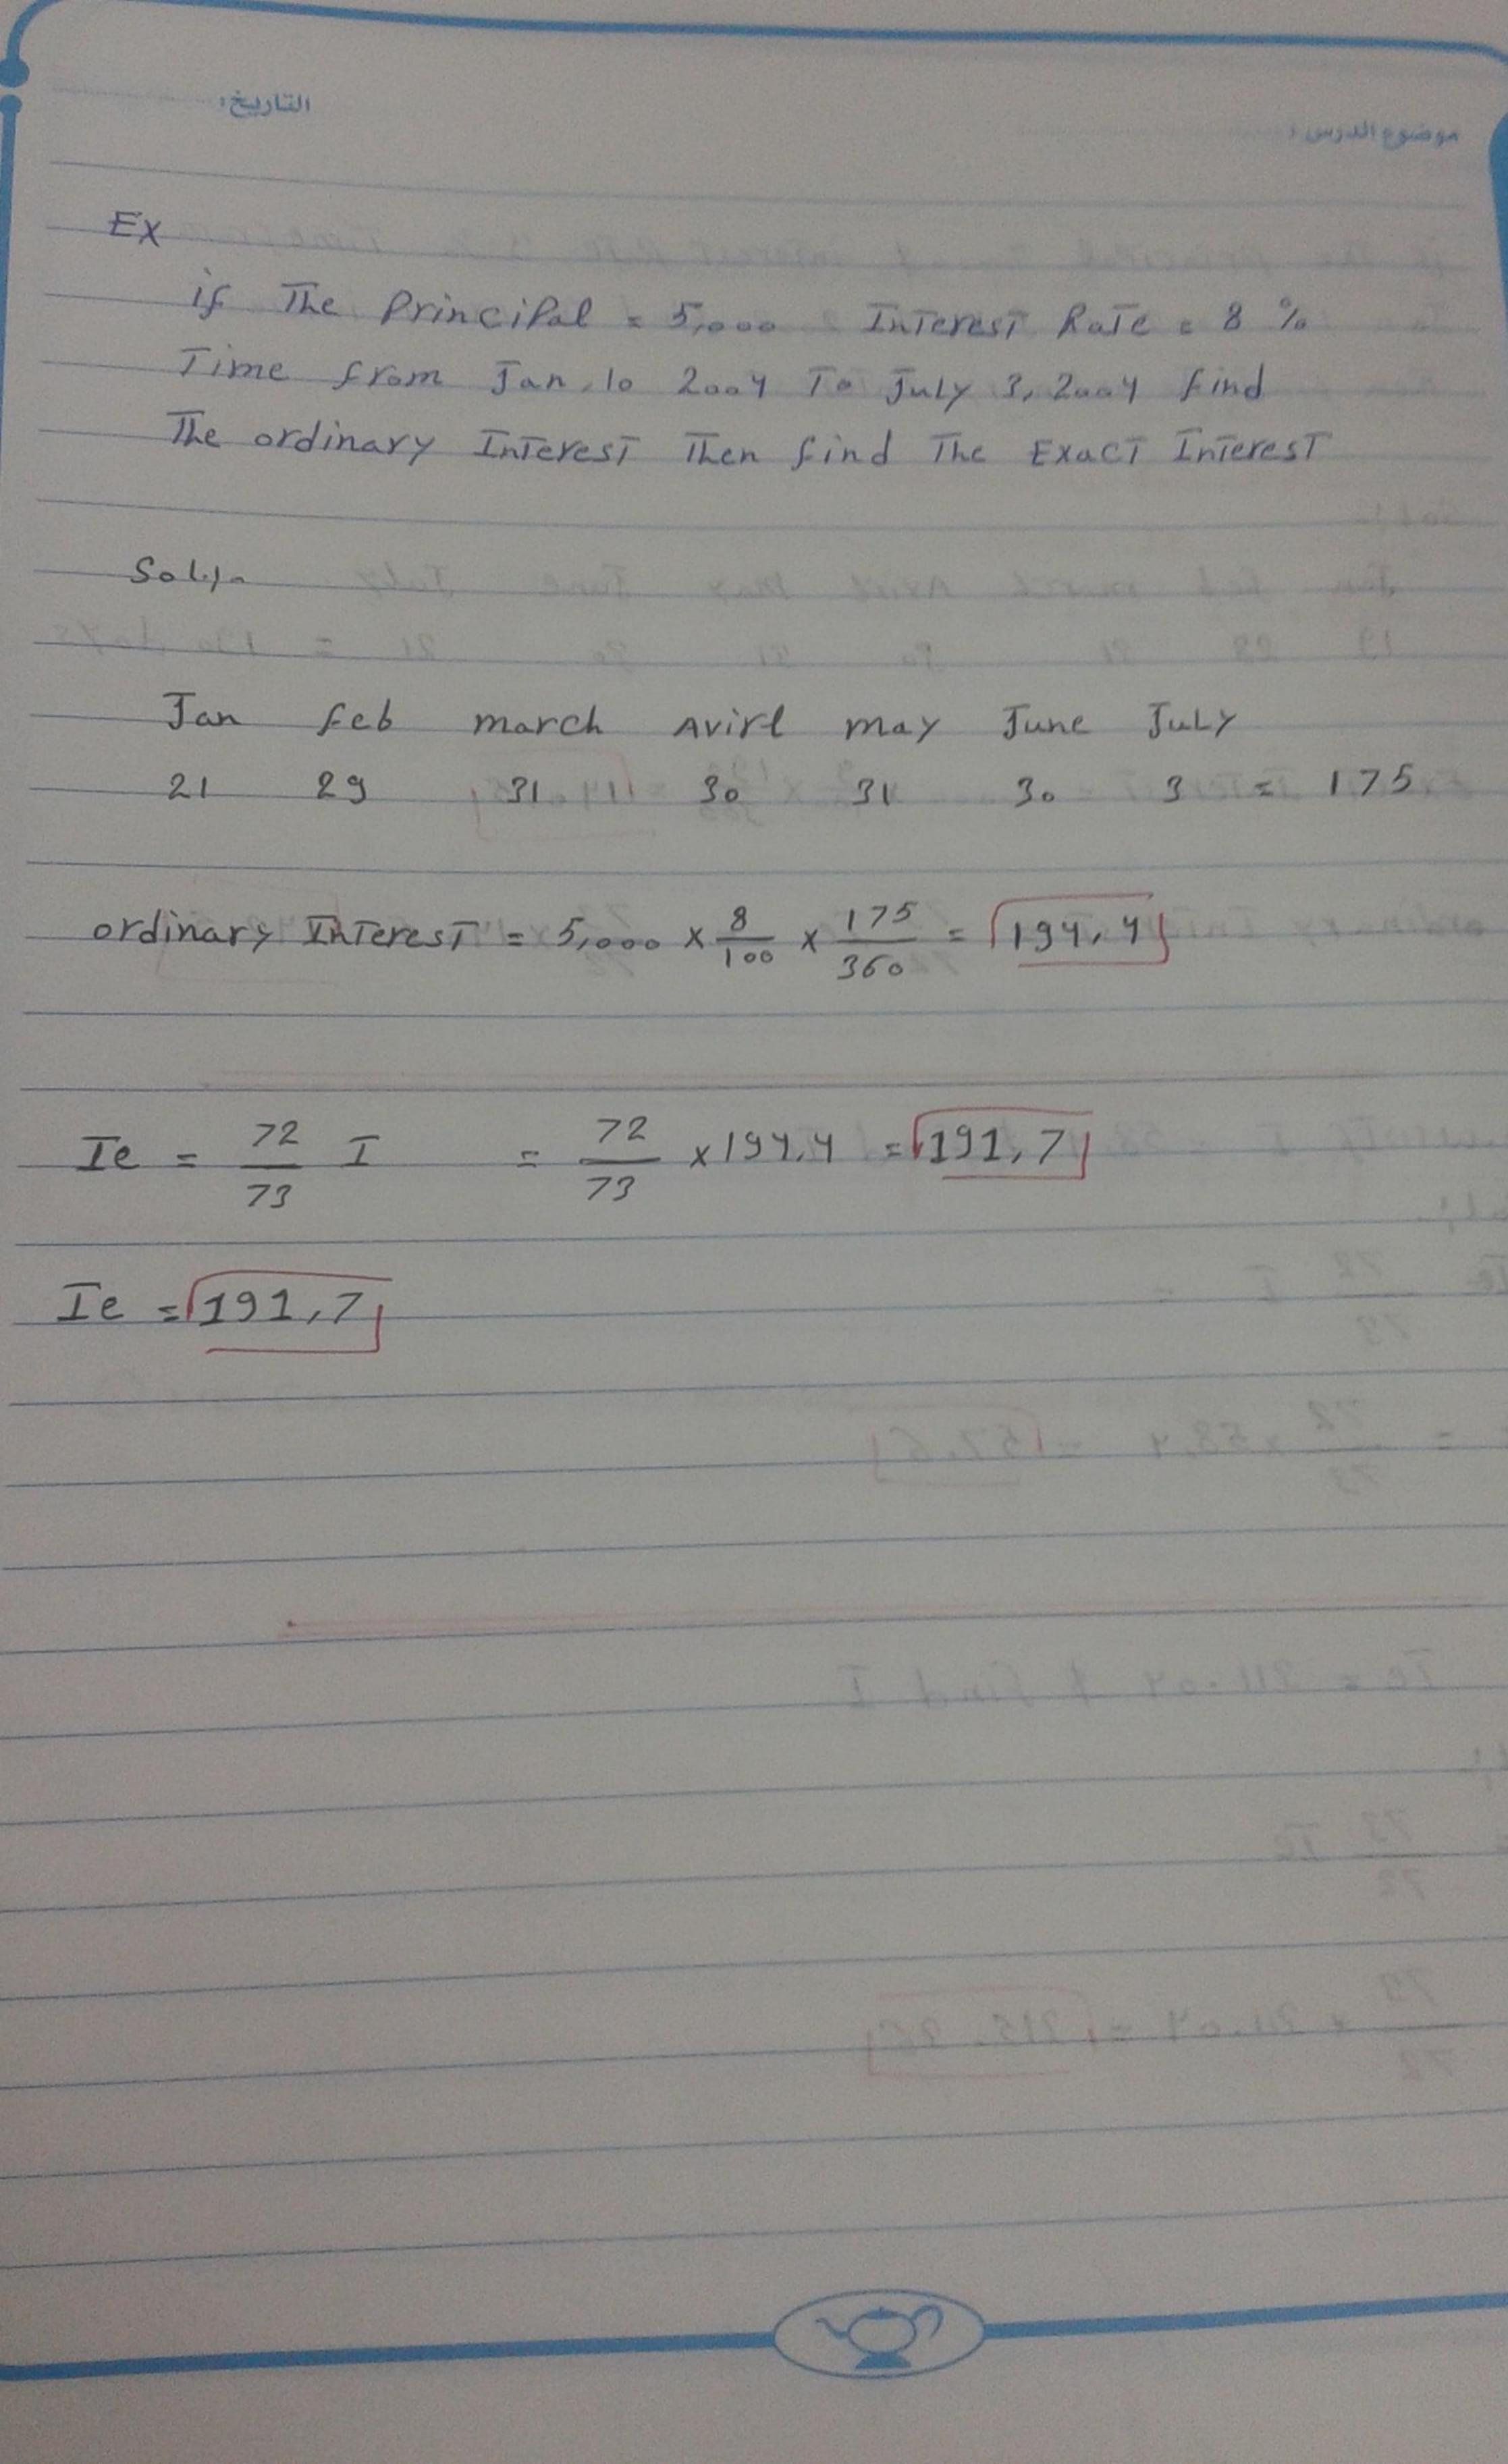 التاريخ:
موضوع الدرس:
Ex
if The Principal = 5,000 Interest Rate = 8 %
Time from Jan, 10 2004 To July 3, 2004 find
The ordinary Interest Then find The Exact Interest
Sol:-
Jan feb march Avirl may June July
21 29 31 30 31 30 3 = 175
ordinary Interest = 5,000 × 8/100 × 175/360 = 194,4
Ie = 72/73 I = 72/73 × 194,4 = 191,7
Ie = 191,7